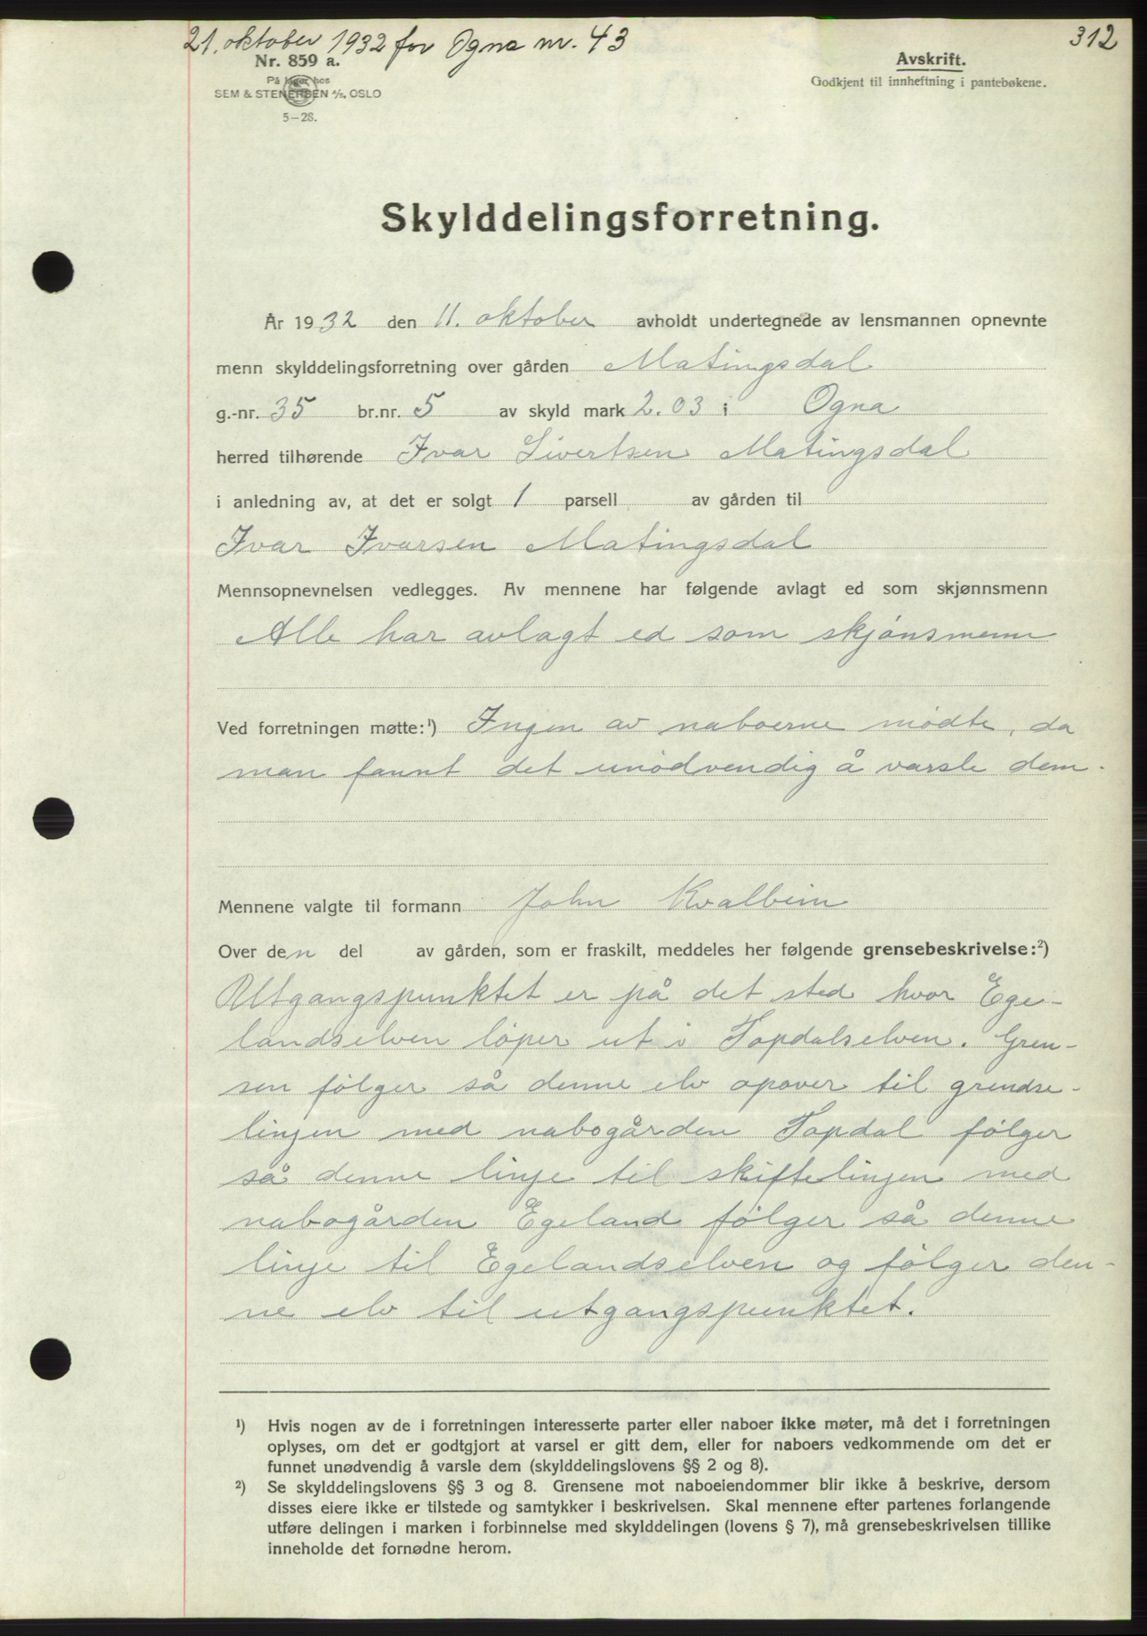 21. oktober 1932 for Ogna nr. 43
312
Nr. 859 a.
På lager hos
SEM & STENERSEN A/S, OSLO
5-28.
Avskrift.
Godkjent til innheftning i pantebøkene.
Skylddelingsforretning.
År 1932 den 11. oktober avholdt undertegnede av lensmannen opnevnte
menn skylddelingsforretning over gården Matingsdal
g.-nr. 35 br.nr. 5 av skyld mark 2.03 i Ogna
herred tilhørende Ivar Sivertsen Matingsdal
i anledning av, at det er solgt 1 parsell av gården til
Ivar Ivarsen Matingsdal
Mennsopnevnelsen vedlegges. Av mennene har følgende avlagt ed som skjønnsmenn
Alle har avlagt ed som skjønsmenn
Ved forretningen møtte:¹) Ingen av naboerne mødte, da
man fannt det unødvendig å varsle dem.
Mennene valgte til formann John Kvalbein
Over den del av gården, som er fraskilt, meddeles her følgende grensebeskrivelse:²)
Utgangspunktet er på det sted hvor Ege-
landselven løper ut i Tapdalselven. Gren-
sen følger så denne elv opover til grendse-
linjen med nabogården Tapdal følger
så denne linje til skiftelinjen med
nabogården Egeland følger så denne
linje til Egelandselven og følger den-
ne elv til utgangspunktet.
¹) Hvis nogen av de i forretningen interesserte parter eller naboer ikke møter, må det i forretningen
oplyses, om det er godtgjort at varsel er gitt dem, eller for naboers vedkommende om det er
funnet unødvendig å varsle dem (skylddelingslovens §§ 2 og 8).
²) Se skylddelingslovens §§ 3 og 8. Grensene mot naboeiendommer blir ikke å beskrive, dersom
disses eiere ikke er tilstede og samtykker i beskrivelsen. Skal mennene efter partenes forlangende
utføre delingen i marken i forbinnelse med skylddelingen (lovens § 7), må grensebeskrivelsen tillike
inneholde det fornødne herom.